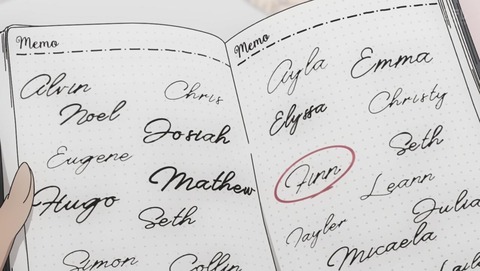 Memo
Alvin
Chris
Noel
Josiah
Eugene
Mathew
Hugo
Seth
Simon
Collin
Memo
Ayla
Emma
Elyssa
Christy
Seth
Finn
Leann
Julia
Tayler
Micaela